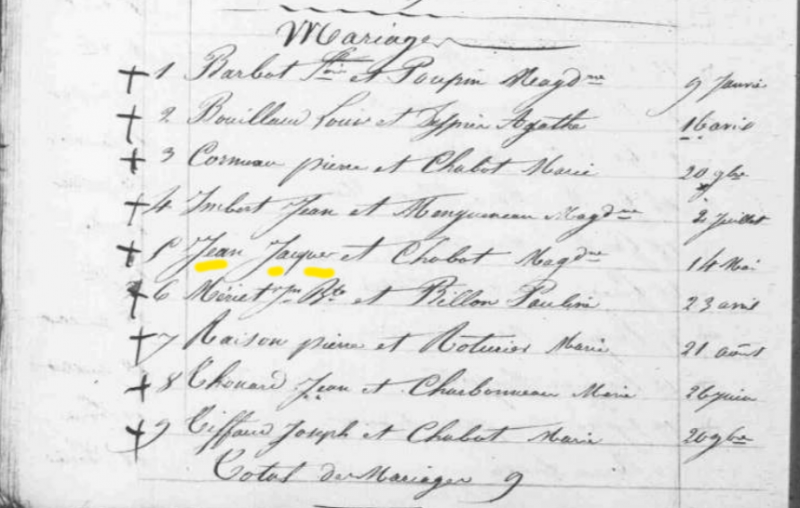 Mariages
1 Barbot et Poupin Magd.ne 9 Janvier
2 Bouillaud Louis et Agathe 16 avril
3 Corneau pierre et Chabot Marie 20 9bre
4 Imbert Jean et Magd.ne 2 Juillet
5 Jean Jacques et Chabot Magd.ne 14 Mai
6 Mériet Jn Bte et Billon Pauline 23 avril
7 Raison pierre et Roturier Marie 21 août
8 Chouard Jean et Charbonneau Marie 26 juin
9 Tiffaud Joseph et Chabot Marie 20 9bre
Total des Mariages 9